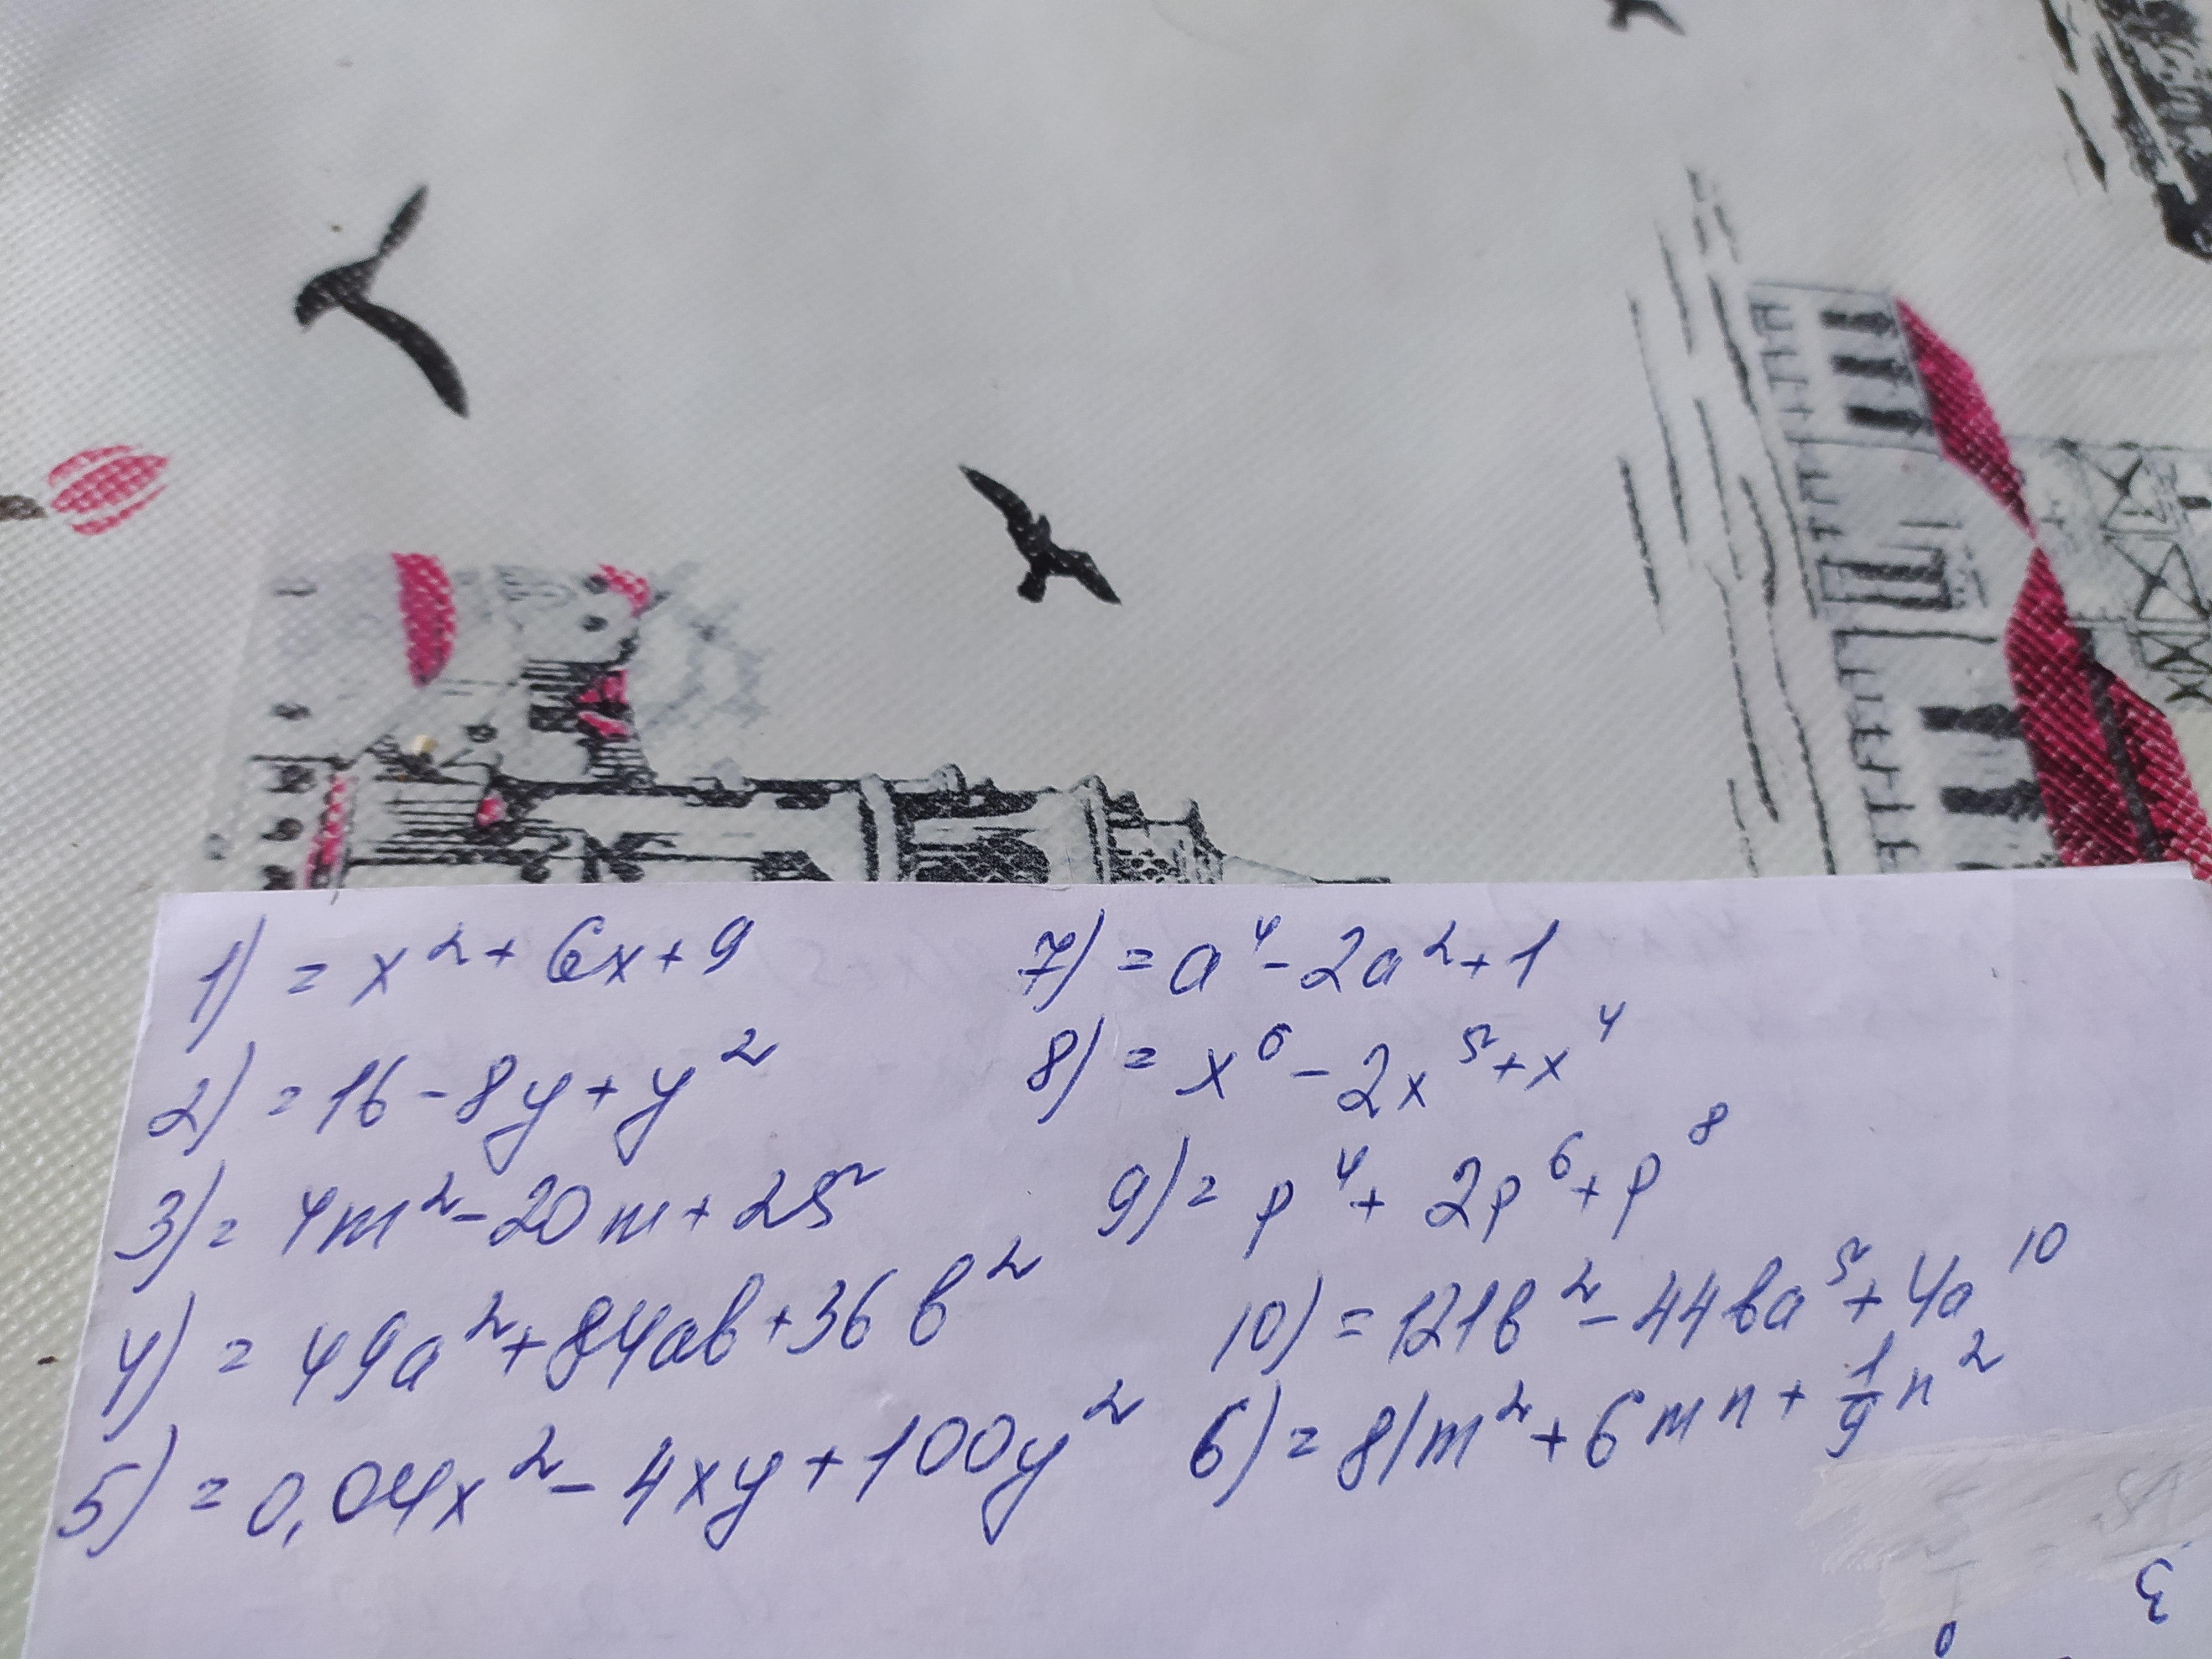 1) = x² + 6x + 9
2) = 16 - 8y + y²
3) = 4m² - 20m + 25
4) = 49a² + 84ab + 36b²
5) = 0,04x² - 4xy + 100y²
7) = a⁴ - 2a² + 1
8) = x⁶ - 2x⁵ + x⁴
9) = p⁴ + 2p⁶ + p⁸
10) = 121b² - 44ba⁵ + 4a¹⁰
6) = 81m² + 6mn + 1/9 n²